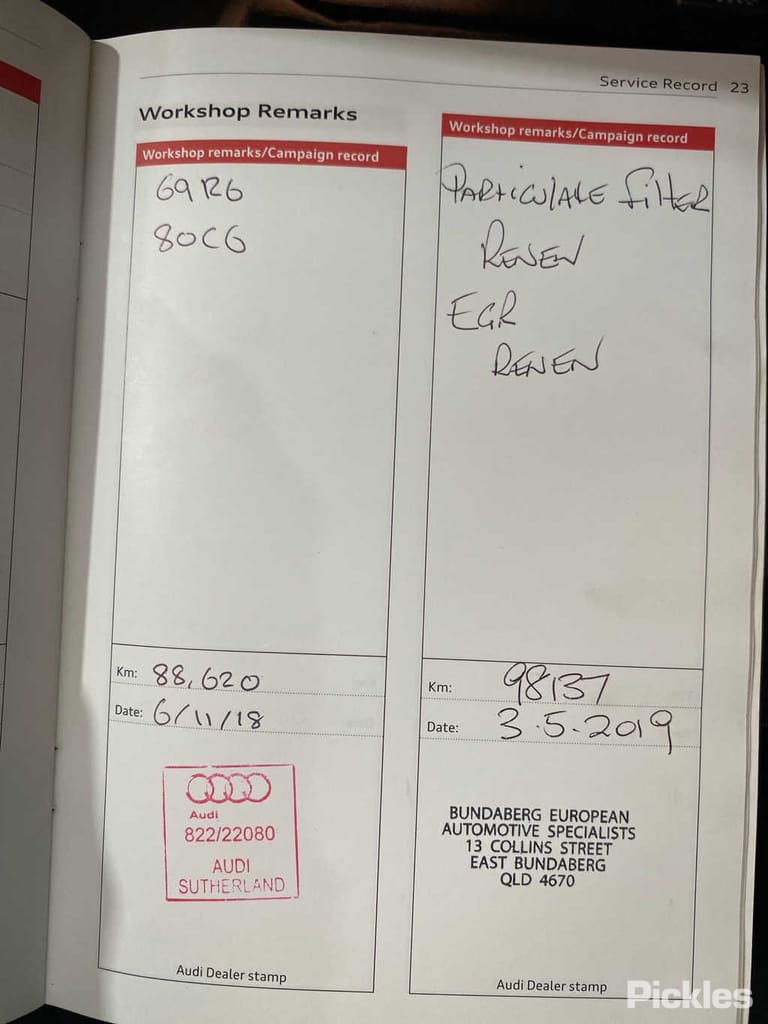 Service Record 23
Workshop Remarks
Workshop remarks/Campaign record
69R6
80C6
Km: 88,620
Date: 6/11/18
Audi
822/22080
AUDI
SUTHERLAND
Audi Dealer stamp
Workshop remarks/Campaign record
PARTICULATE FILTER
RENEW
EGR
RENEW
Km: 98137
Date: 3.5.2019
BUNDABERG EUROPEAN
AUTOMOTIVE SPECIALISTS
13 COLLINS STREET
EAST BUNDABERG
QLD 4670
Audi Dealer stamp
Pickles